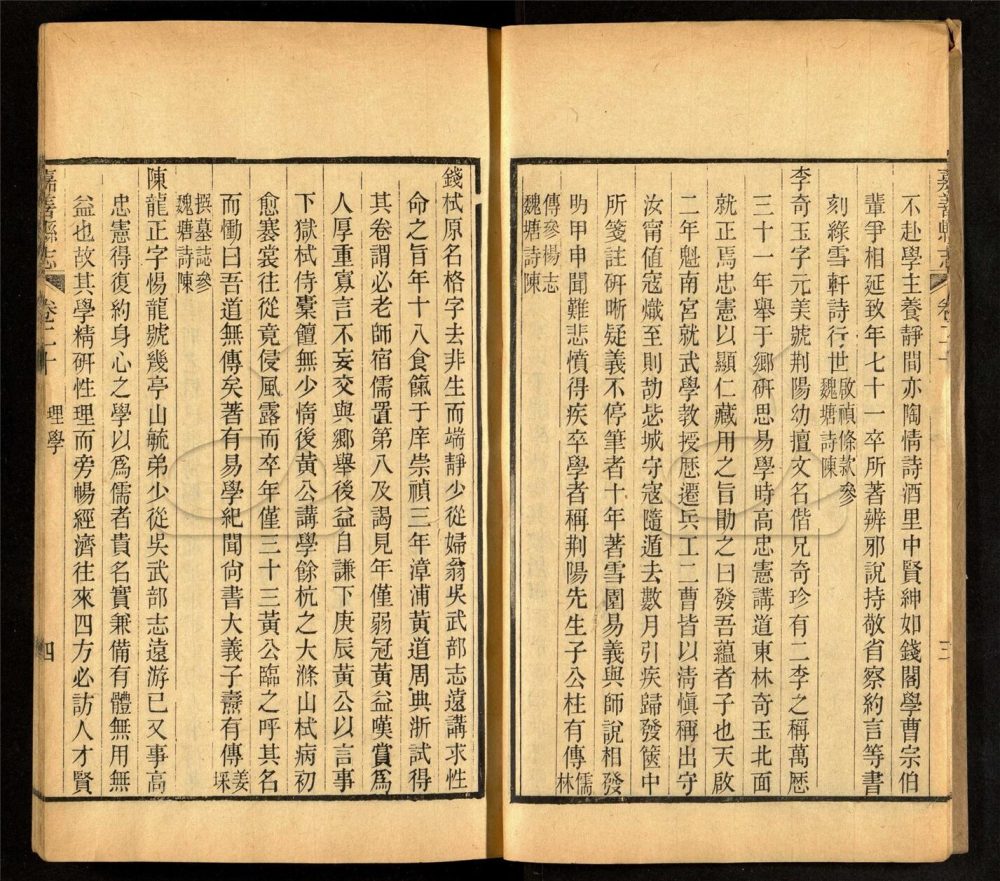 嘉善縣志
卷二十
三
不赴學主養靜間亦陶情詩酒里中賢紳如錢閣學曹宗伯
輩爭相延致年七十一卒所著辨邪說持敬省察約言等書
刻綠雪軒詩行世啟禎條款參
魏塘詩陳
李奇玉字元美號荆陽幼擅文名偕兄奇珍有二李之稱萬歷
三十一年舉于鄉硏思易學時高忠憲講道東林奇玉北面
就正焉忠憲以顯仁藏用之旨勖之曰發吾蘊者子也天啟
二年魁南宮就武學教授歷遷兵工二曹皆以淸愼稱出守
汝甯值寇熾至則劼毖城守寇隨遁去數月引疾歸發篋中
所箋註硏晰疑義不停筆者十年著雪園易義與師說相發
明甲申聞難悲憤得疾卒學者稱荆陽先生子公柱有傳儒
林
傳參楊志
魏塘詩陳
錢栻原名格字去非生而端靜少從婦翁吳武部志遠講求性
命之旨年十八食餼于庠崇禎三年漳浦黃道周典浙試得
其卷謂必老師宿儒置第八及謁見年僅弱冠黃益嘆賞爲
人厚重寡言不妄交與鄉舉後益自謙下庚辰黃公以言事
下獄栻侍槖饘無少惰後黃公講學餘杭之大滌山栻病初
愈褰裳往從竟侵風露而卒年僅三十三黃公臨之呼其名
而慟曰吾道無傳矣著有易學紀聞尙書大義子燾有傳姜
埰
撰墓誌參
魏塘詩陳
陳龍正字惕龍號幾亭山毓弟少從吳武部志遠游已又事高
忠憲得復約身心之學以爲儒者貴名實兼備有體無用無
益也故其學精硏性理而旁暢經濟往來四方必訪人才賢
嘉善縣志
卷二十
理學
四